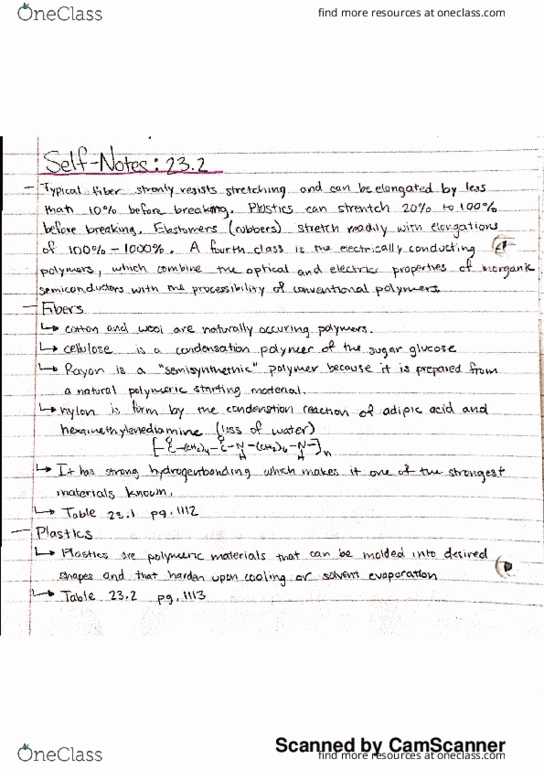 OneClass
find more resources at oneclass.com
Self-Notes: 23.2
— Typical fiber stronly resists stretching and can be elongated by less
than 10% before breaking. Plastics can strentch 20% to 100%
before breaking. Elastomers (rubbers) stretch readily with elongations
of 100% - 1000%. A fourth class is the electrically conducting
polymers, which combine the optical and electric properties of inorganic
semiconductors with the processibility of conventional polymers
— Fibers
↳ cotton and wool are naturally occuring polymers.
↳ cellulose is a condensation polymer of the sugar glucose
↳ Rayon is a "semisynthetic" polymer because it is prepared from
a natural polymeric starting material.
↳ nylon is form by the condenstion reaction of adipic acid and
hexamethylenediamine (loss of water)
[-C-(CH2)4-C-N-(CH2)6-N-]n
O O H H
↳ It has strong hydrogenbonding which makes it one of the strongest
materials known.
↳ Table 23.1 pg. 1112
— Plastics
↳ Plastics are polymeric materials that can be molded into desired
shapes and that harden upon cooling or solvent evaporation
↳ Table 23.2 pg. 1113
Scanned by CamScanner
OneClass
find more resources at oneclass.com